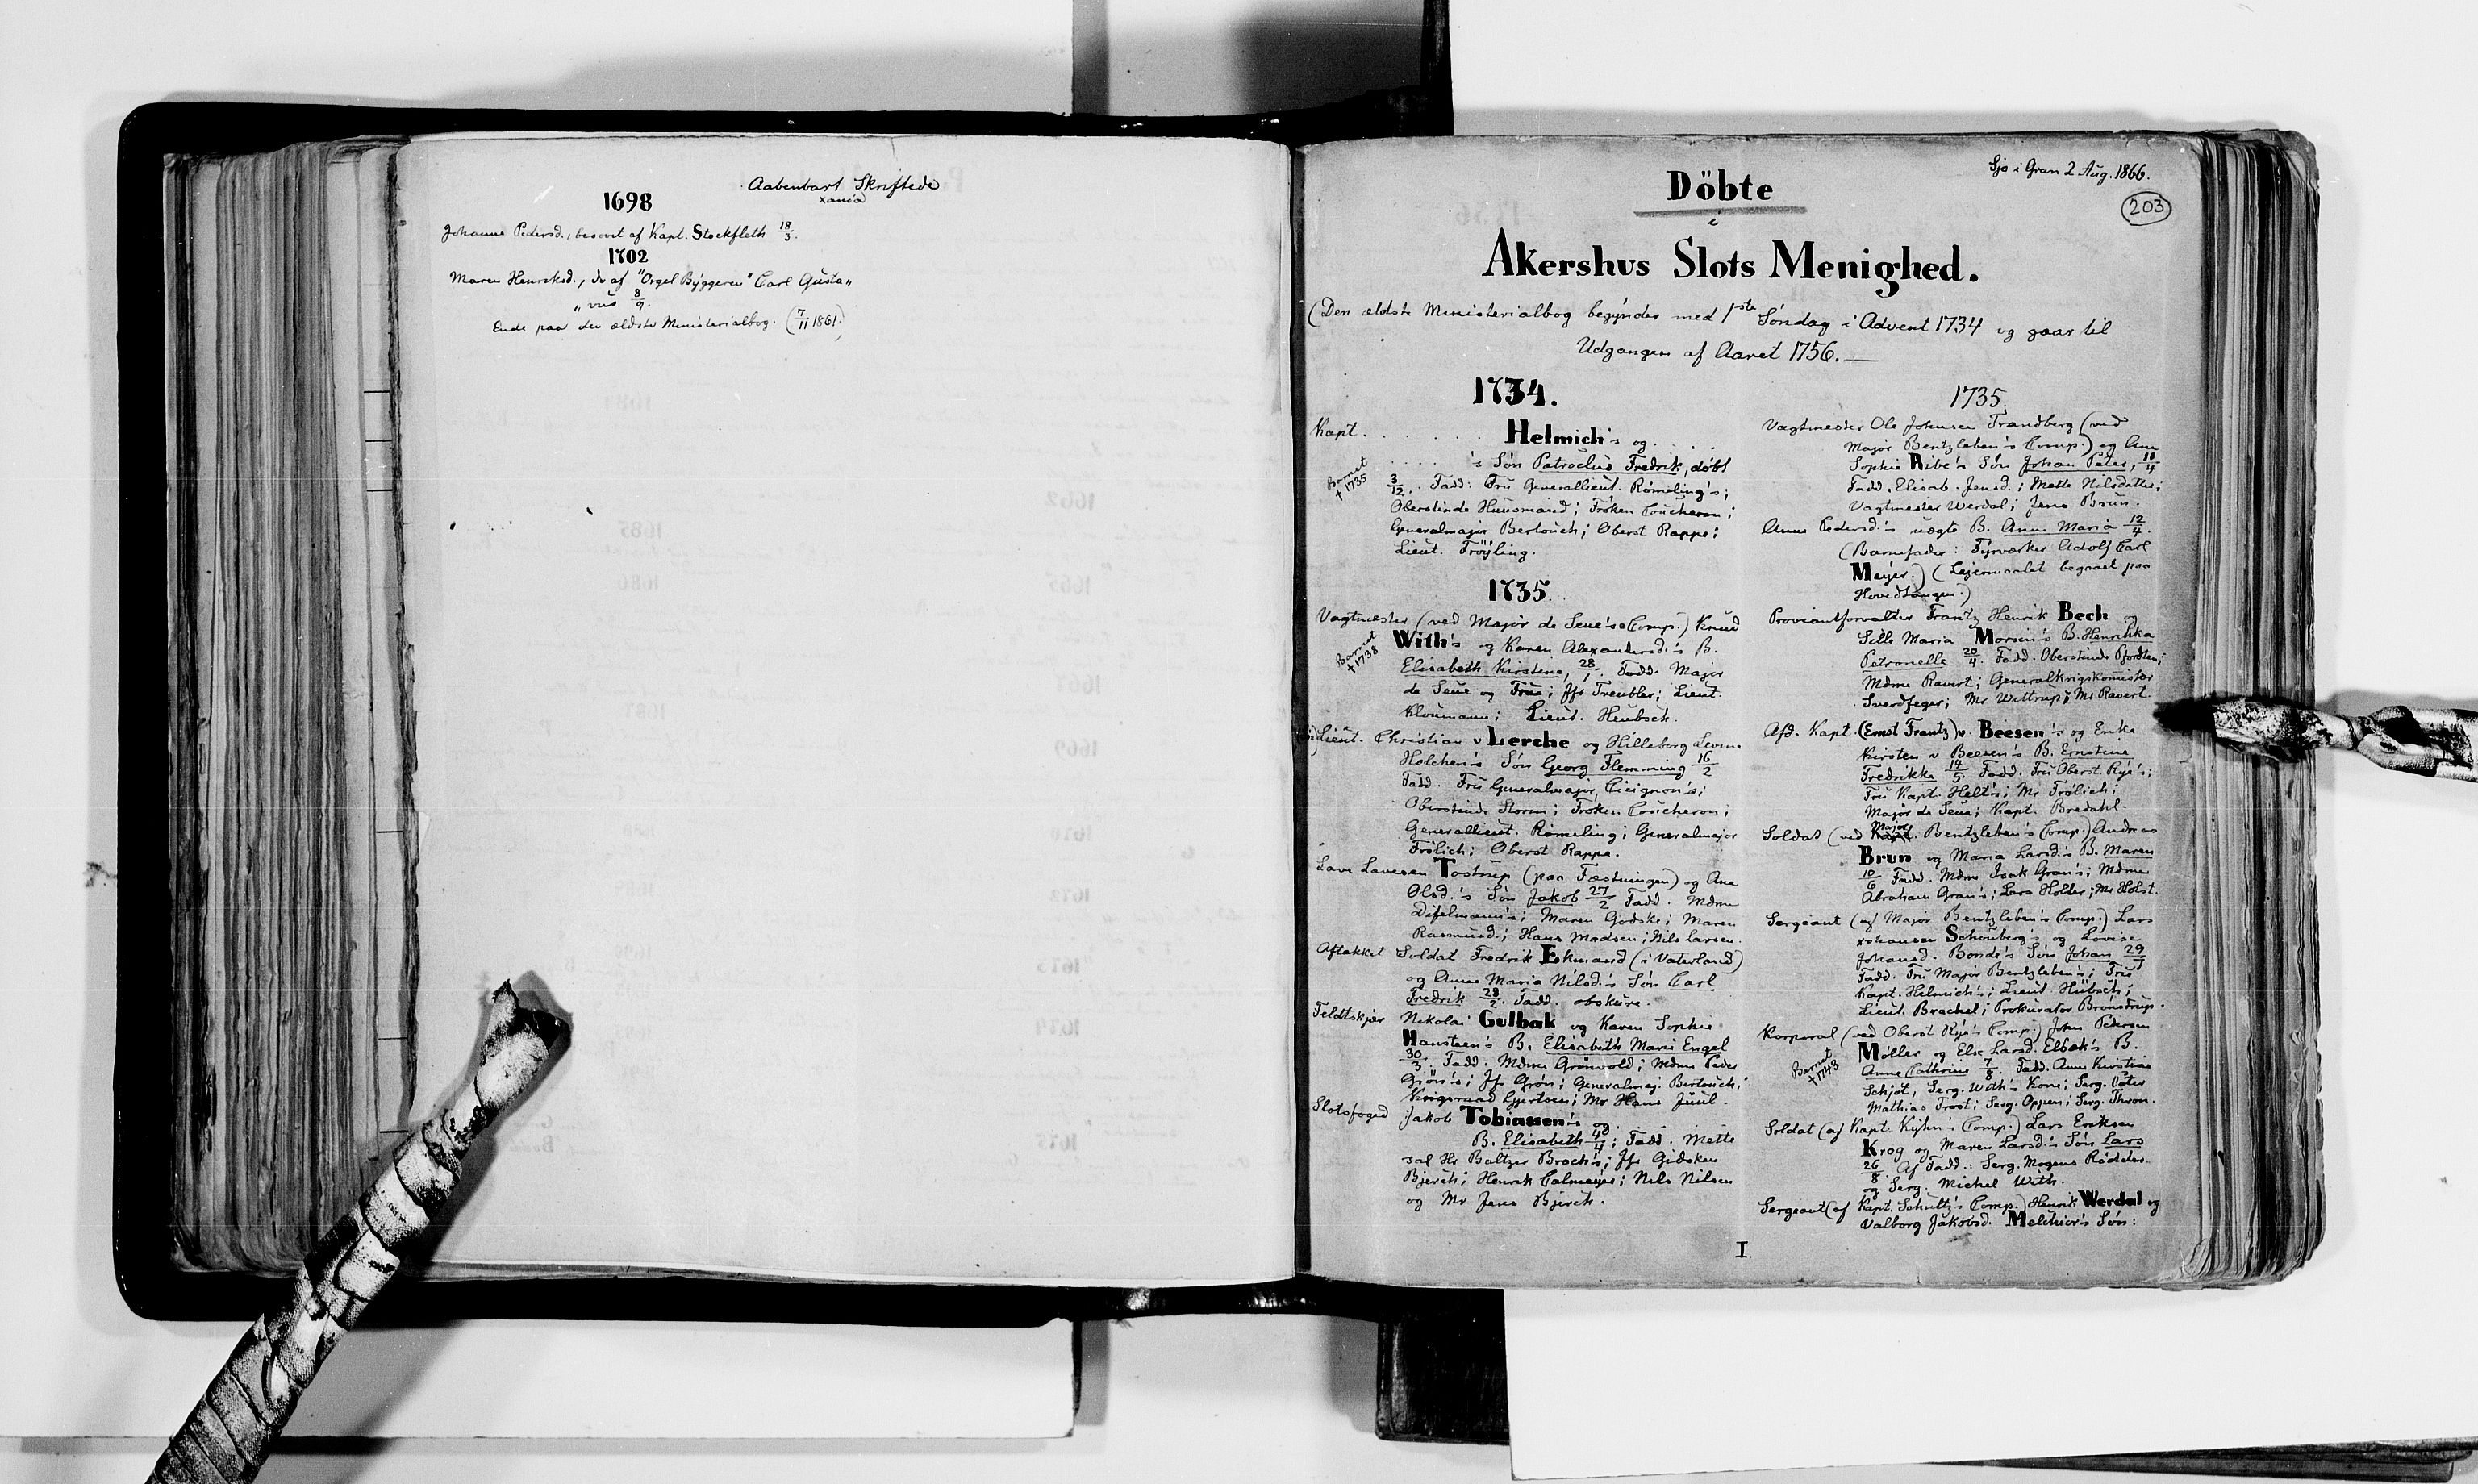 Aabenbart Skriftede
xania
1698
Johanne Pedersd., besovet af Kapt. Stockfleth 18/3.
1702
Maren Henriksd., do af "Orgel Byggeren" Carl Gusta„
„vus 8/9.
Ende paa den ældste Ministerialbog. (7/11 1861.)
Sjo i Gran 2 Aug. 1866.
203
Döbte
i
Akershus Slots Menighed.
(Den ældste Ministerialbog begynder med 1ste Söndag i Advent 1734 og gaar til
Udgangen af Aaret 1756.
1734.
Kapt. . . . . . . Helmich's og . . .
. . . . 's Sön Patroclus Fredrik, döbt
Barnet
† 1735
3/12. Fadd: Fru Generallieut. Römeling's;
Oberstinde Huusmand; Fröken Coucheron;
Generalmajor Bertouch; Oberst Rappe;
Lieut. Fröyling.
1735
Vagtmester (ved Major de Seue's Comp.) Knud
With's og Karen Alexandersd.'s B.
Barnet
† 1738
Elisabeth Kirstine, 28/1. Fadd. Major
de Seue og Frue; Jfr Treubler; Lieut.
Kloumann; Lieut. Heubsch.
Lieut. Christian v Lerche og Hilleborg Levina
Holchen's Sön Georg Flemming 16/2
Fadd. Fru Generalmajor Cicignon's;
Oberstinde Storm; Fröken Coucheron;
Generallieut. Römeling; Generalmajor
Frölich; Oberst Rappe.
Lave Lavesen Tostrup (paa Fæstningen) og Ane
Olsd.'s Sön Jakob 27/2 Fadd. Mdme
Difelmann's; Maren Godske; Maren
Rasmusd.; Hans Madsen; Nils Larsen.
Aftakket Soldat Fredrik Ekmand (i Vaterland)
og Anne Maria Nilsd.'s Sön Carl
Fredrik 28/2. Fadd. obskure.
Feldtskjær Nikolai Gulbak og Karen Sophie
Hansteen's B. Elisabeth Marie Engel
30/3. Fadd. Mdme Grönvold; Mdme Peder
Grön's; Jfr Grön; Generalmaj. Bertouch;
Krigsraad Gjertsen; Mr Hans Juul.
Slotsfoged Jakob Tobiassen's og
B. Elisabeth 4; Fadd. Mette
sal Hr Baltzer Broch's; Jfr Gidsken
Bjerch; Henrik Calmeyer; Nils Nilsen
og Mr Jens Bjerch.
1735.
Vagtmester Ole Johnsen Trandberg (ved
Major Bentzleben's Comp.) og Ane
Sophie Ribe's Sön Johan Peter, 10/4
Fadd. Elisab. Jensd.; Mette Nilsdatter;
Vagtmester Werdal; Jens Brun.
Anne Pedersd.'s uægte B. Anne Maria 12/4.
(Barnefader: Fyrværker Adolf Carl
Meyer.) (Lejermaalet begaaet paa
Hovedtangen.)
Proviantforvalter Frantz Henrik Bech og
Sille Maria Morsin's B. Henrikka
Petronelle 20/4. Fadd. Oberstinde Pfordten;
Mdme Ravert; Generalkrigskomissær
Sverdfeger; Mr Wittrup; Mr Ravert.
Afd. Kapt. (Ernst Frantz) v. Beesen's og Enke
Kirsten v Beesen's B. Ernstine
Fredrikke 14/5. Fadd. Fru Oberst Rye's;
Fru Kapt. Helt's; Mr Frölich;
Major de Seue; Kapt. Bredahl.
Soldat (ved Kapt. Major Bentzleben's Comp.) Andreas
Brun og Maria Larsd.'s B. Maren
10/6 Fadd. Mdme Isak Gran's; Mdme
Abraham Gran's; Lars Holter; Mr Holst.
Sergeant (af Major Bentzleben's Comp.) Lars
Johansen Schouberg's og Lovise
Johansd. Bonde's Sön Johan 29/7
Fadd. Fru Major Bentzleben's; Fru
Kapt. Helmich's; Lieut Hübsch;
Lieut. Brachel; Prokurator Brönstrup.
Korporal (ved Oberst Rye's Comp.) John Pedersen
Möller og Else Larsd. Elbæk's B.
Barnet
† 1743
Anne Cathrine 7/8. Fadd. Anne Kirstine
Schjöt, Serg. With's Kone; Serg. Peter
Mathias Trost; Serg. Oppen; Serg. Thron.
Soldat (af Kapt. Kyhn's Comp.) Lars Eriksen
Krog og Maren Larsd.'s Sön Lars
26/8 Af Fadd.: Serg. Mogens Rödder
og Serg. Michel With.
Sergeant (af Kapt. Schultz's Comp.) Henrik Werdal og
Valborg Jakobsd. Melchior's Sön:
I.